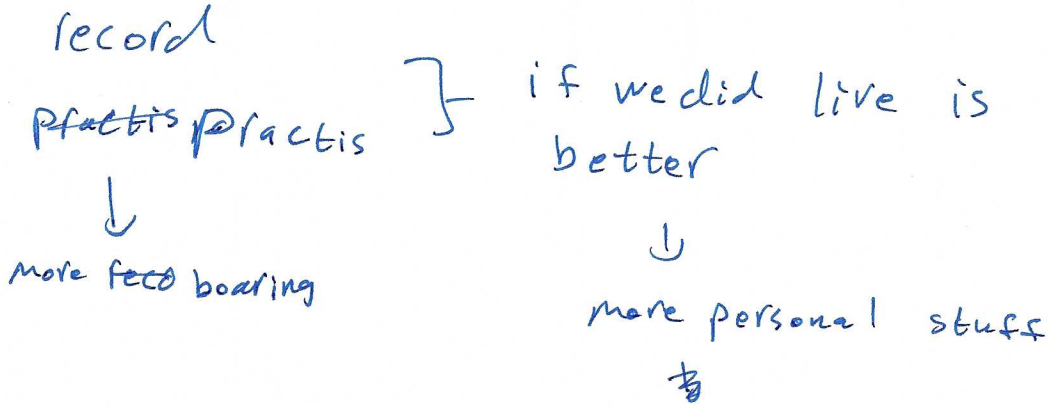 record
practis
if we did live is
better
more boaring
more personal stuff